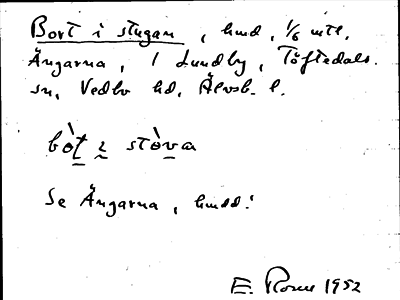 Bort i stugan, hmd, 1/6 mtl,
Ängarna, 1 Lundby, Töftedals.
sn, Vedbo hd, Älvsb. l.
bò̱t i̱ stò̱va
Se Ängarna, hmdd!
E. 1952